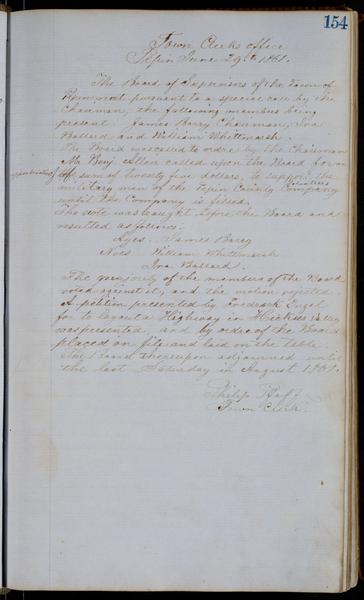 154
Town Clerks office
Pepin June 29th 1861.
The Board of Supervisors of the Town of
Pepin met pursuant to a special call by the
Chairman, the following members being
present, James Barry Chairman, Ira
Ballard and William Whitmarsh.
The Board was called to order by the Chairman
Mr Benj Allen called upon the Board for
the sum of twenty five dollars, to support the
military men of the Pepin County Volunteers Company
until the Company is filled.
The vote was brought before the Board and
resulted as follows:
Ayes. James Barry
Noes. William Whitmarsh
Ira Ballard.
The majority of the members of the Board
voted against it, and the motion rejected.
A petition presented by Frederick
for to layout a Highway in Hicks Valley
was presented, and by order of the Board
placed on file and laid on the table.
The Board thereupon adjourned until
the last Saturday in August 1861.
Philip Pfaff
Town Clerk.